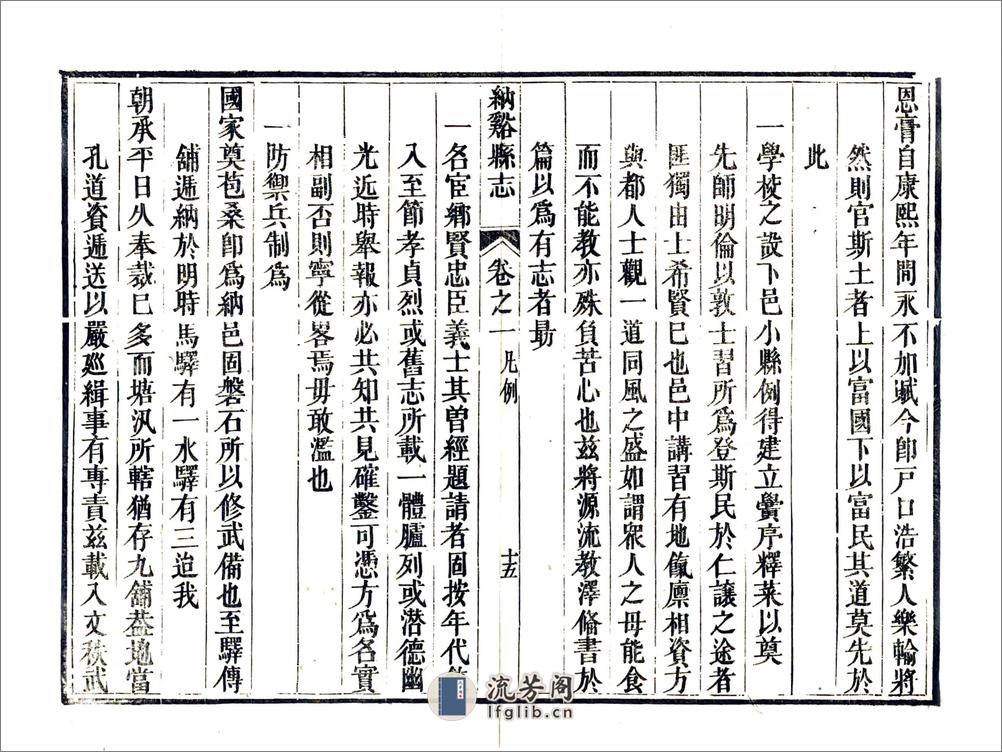 恩膏自康熙年間永不加賦今卽戸口浩繁人樂輸將
然則官斯土者上以富國下以富民其道莫先於
此
一學校之設下邑小縣例得建立黌序釋菜以奠
先師明倫以敦士習所爲登斯民於仁讓之途者
匪獨由士希賢已也邑中講習有地餼廪相資方
與都人士觀一道同風之盛如謂眾人之母能食
而不能教亦殊負苦心也兹將源流教澤僃書於
篇以爲有志者勗
納谿縣志
卷之一
凡例
十五
一名宦鄉賢忠臣義士其曾經題請者固按年代
入至節孝貞烈或舊志所載一體臚列或潜德幽
光近時舉報亦必共知共見確鑿可憑方爲名實
相副否則寧從畧焉毋敢濫也
一防禦兵制爲
國家奠苞桑卽爲納邑固磐石所以修武備也至驛傳
舖遞納於明時馬驛有一水驛有三迨我
朝承平日久奉裁已多而塘汛所轄猶存九舖葢地當
孔道資遞送以嚴廵緝事有專責兹載入文秩武
流芳阁
lfglib.cn